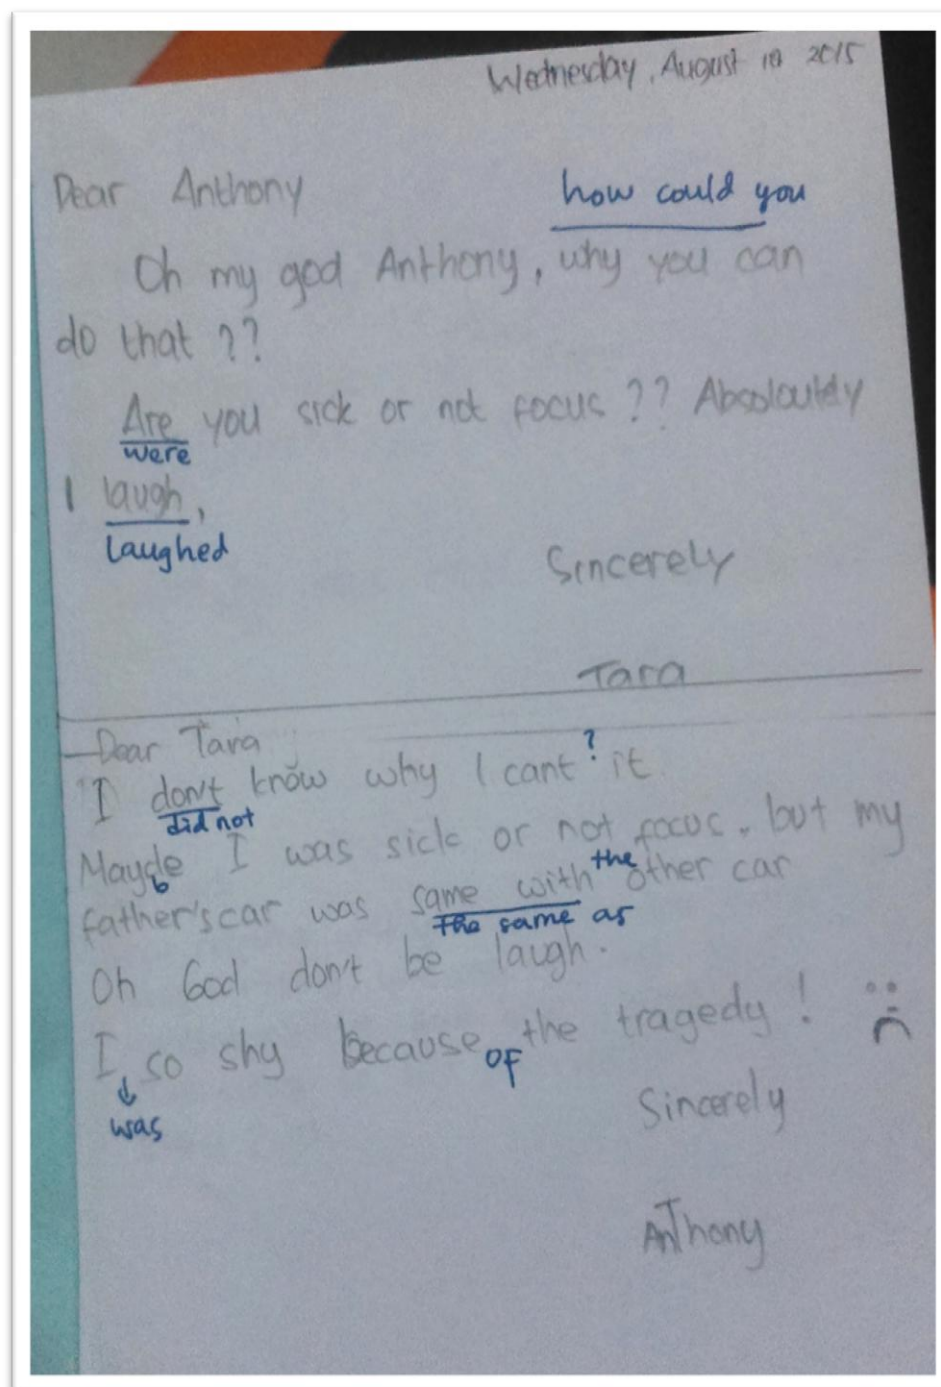 Wednesday, August 19 2015
Dear Anthony
how could you
Oh my god Anthony, why you can
do that ??
Are you sick or not focus ?? Absoloutely
were
I laugh,
laughed
Sincerely
Tara
Dear Tara
?
I don't know why I cant it.
did not
Maybe I was sick or not focus, but my
b
the
father's car was same with other car
the same as
Oh God don't be laugh.
I so shy because the tragedy !
of
was
Sincerely
Anthony